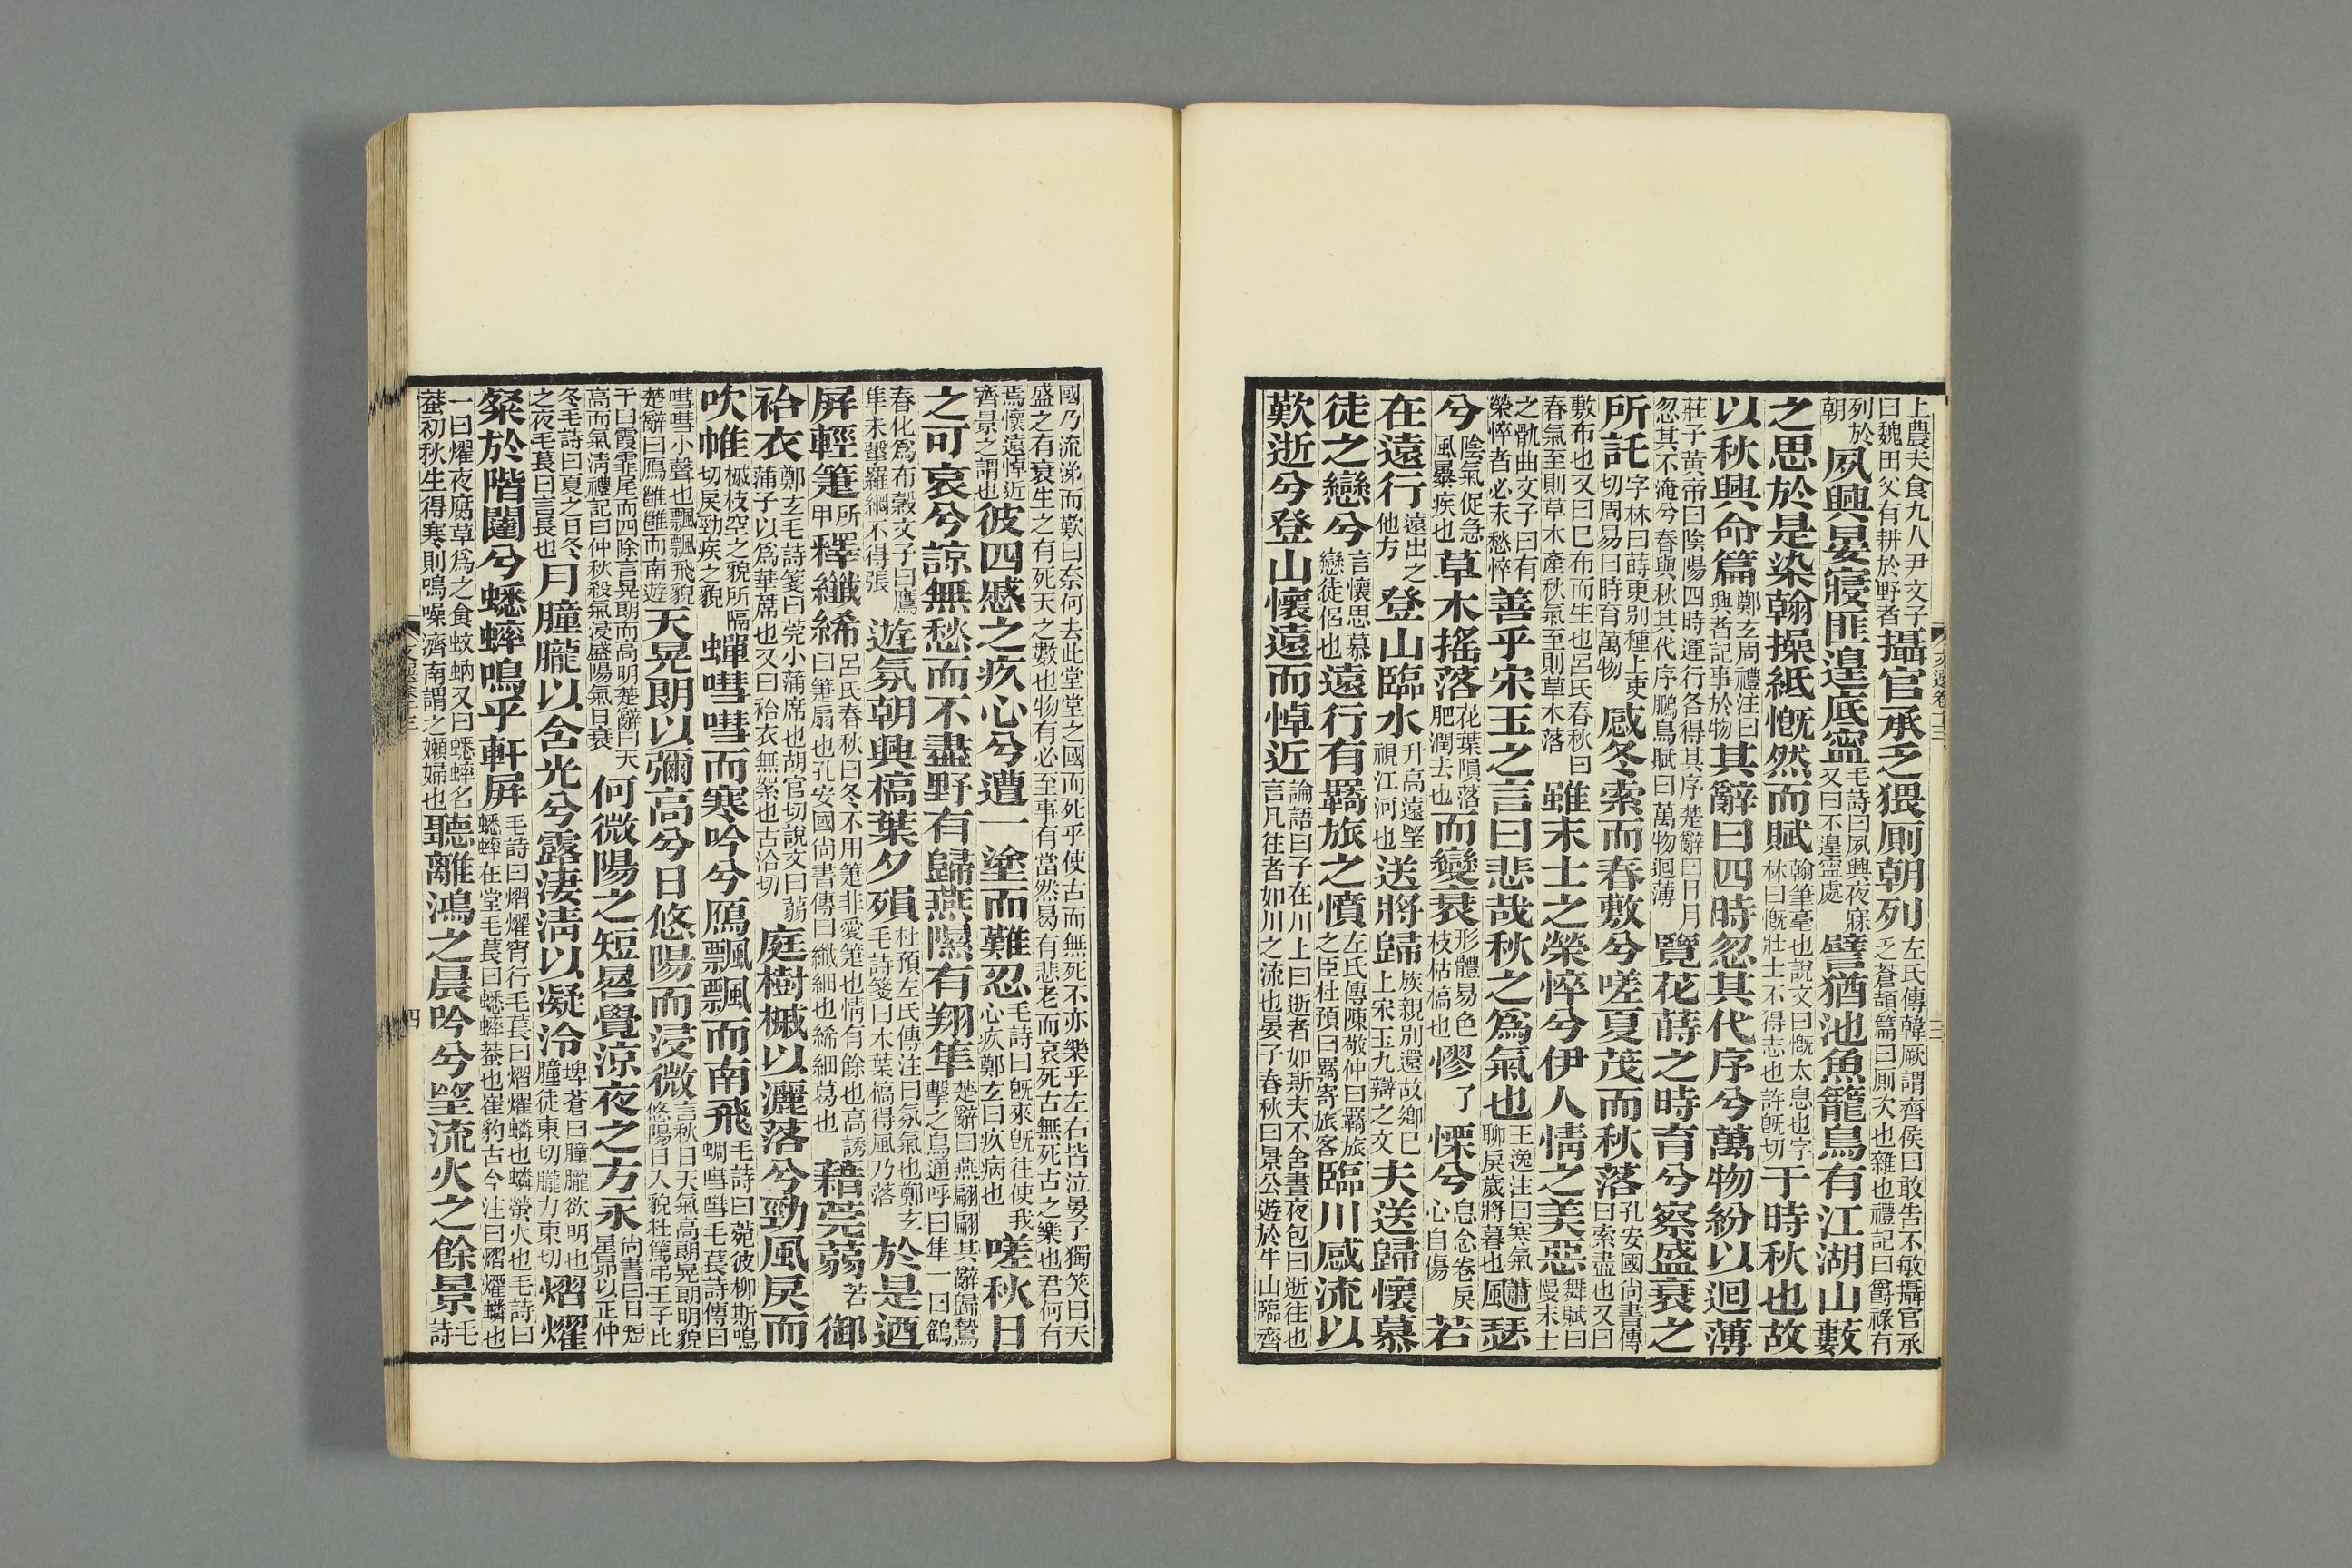 上農夫食九人尹文子曰魏田父有耕於野者攝官承乏猥厠朝列左氏傳韓厥謂齊侯曰敢告不敏攝官承乏蒼頡篇曰厠次也雜也禮記曰爵祿有
列於朝夙興晏寢匪遑底寧毛詩曰夙興夜寐又曰不遑寧處譬猶池魚籠鳥有江湖山藪
之思於是染翰操紙慨然而賦翰筆毫也說文曰慨太息也字林曰慨壯士不得志也許旣切于時秋也故
以秋興命篇鄭玄周禮注曰興者記事於物其辭曰四時忽其代序兮萬物紛以迴薄
莊子黃帝曰陰陽四時運行各得其序楚辭曰日月忽其不淹兮春與秋其代序鵩鳥賦曰萬物迴薄覽花蒔之時育兮察盛衰之
所託字林曰蒔更别種上吏切周易曰時育萬物感冬索而春敷兮嗟夏茂而秋落孔安國尚書傳曰索盡也又曰
敷布也又曰巳布而生也呂氏春秋曰春氣至則草木產秋氣至則草木落雖末士之榮悴兮伊人情之美惡舞賦曰慢末士
之骩曲文子曰有榮悴者必末愁悴善乎宋玉之言曰悲哉秋之爲氣也王逸注曰寒氣聊戾歲將暮也飋瑟
兮陰氣促急風暴疾也草木搖落花葉隕落肥潤去也而變衰形體易色枝枯槁也憀了慄兮息念卷戾心自傷若
在遠行遠出之他方登山臨水升高遠望視江河也送將歸族親别還故鄉已上宋玉九辯之文夫送歸懷慕
徒之戀兮言懷思慕戀徒侶也遠行有羇旅之憤左氏傳陳敬仲曰羇旅之臣杜預曰羇寄旅客臨川感流以
歎逝兮登山懷遠而悼近論語曰子在川上曰逝者如斯夫不舍晝夜包曰逝往也言凡往者如川之流也晏子春秋曰景公遊於牛山臨齊
國乃流涕而歎曰奈何去此堂堂之國而死乎使古而無死不亦樂乎左右皆泣晏子獨笑曰天盛之有衰生之有死天之數也物有必至事有當然曷有悲老而哀死古無死古之樂也君何有
焉懷遠悼近齊景之謂也彼四慼之疚心兮遭一塗而難忍毛詩曰旣來旣往使我心疚鄭玄曰疚病也嗟秋日
之可哀兮諒無愁而不盡野有歸燕隰有翔隼楚辭曰燕翩翩其辭歸鷙擊之鳥通呼曰隼一曰鷂
春化爲布穀文子曰鷹隼未擊羅網不得張遊氛朝興槁葉夕殞杜預左氏傳注曰氛氣也鄭玄毛詩箋曰木葉槁得風乃落於是迺
屏輕箑所甲釋纖絺呂氏春秋曰冬不用箑非愛箑也情有餘也高誘曰箑扇也孔安國尚書傳曰纖細也絺細葛也藉莞蒻若御
袷衣鄭玄毛詩箋曰莞小蒲席也胡官切說文曰蒻蒲子以爲華蓆也又曰袷衣無絮也古洽切庭樹槭以灑落兮勁風戾而
吹帷槭枝空之貌所隔切戾勁疾之貌蟬嘒嘒而寒吟兮鴈飄飄而南飛毛詩曰菀彼柳斯鳴蜩嘒嘒毛萇詩傳曰
嘒嘒小聲也飄飄飛貌楚辭曰鴈雝雝而南遊天晃朗以彌高兮日悠陽而浸微言秋日天氣高朗晃朗明貌悠陽日入貌杜篤弔王子比
干曰霞霏尾而四除言晃朗而高明楚辭曰天高而氣清禮記曰仲秋殺氣浸盛陽氣日衰何微陽之短晷覺涼夜之方永尚書曰日短星昴以正仲
冬毛詩曰夏之日冬之夜毛萇曰言長也月朣朧以含光兮露淒清以凝冷埤蒼曰朣朧欲明也朣徒東切朧力東切熠燿
粲於階闥兮蟋蟀鳴乎軒屏毛詩曰熠燿宵行毛萇曰熠燿燐也燐螢火也毛詩曰蟋蟀在堂毛萇曰蟋蟀蛬也崔豹古今注曰熠燿燐也
一曰燿夜腐草爲之食蚊蚋又曰蟋蟀名蛬初秋生得寒則鳴噪濟南謂之嬾婦也聽離鴻之晨吟兮望流火之餘景毛詩
文選卷十三
四